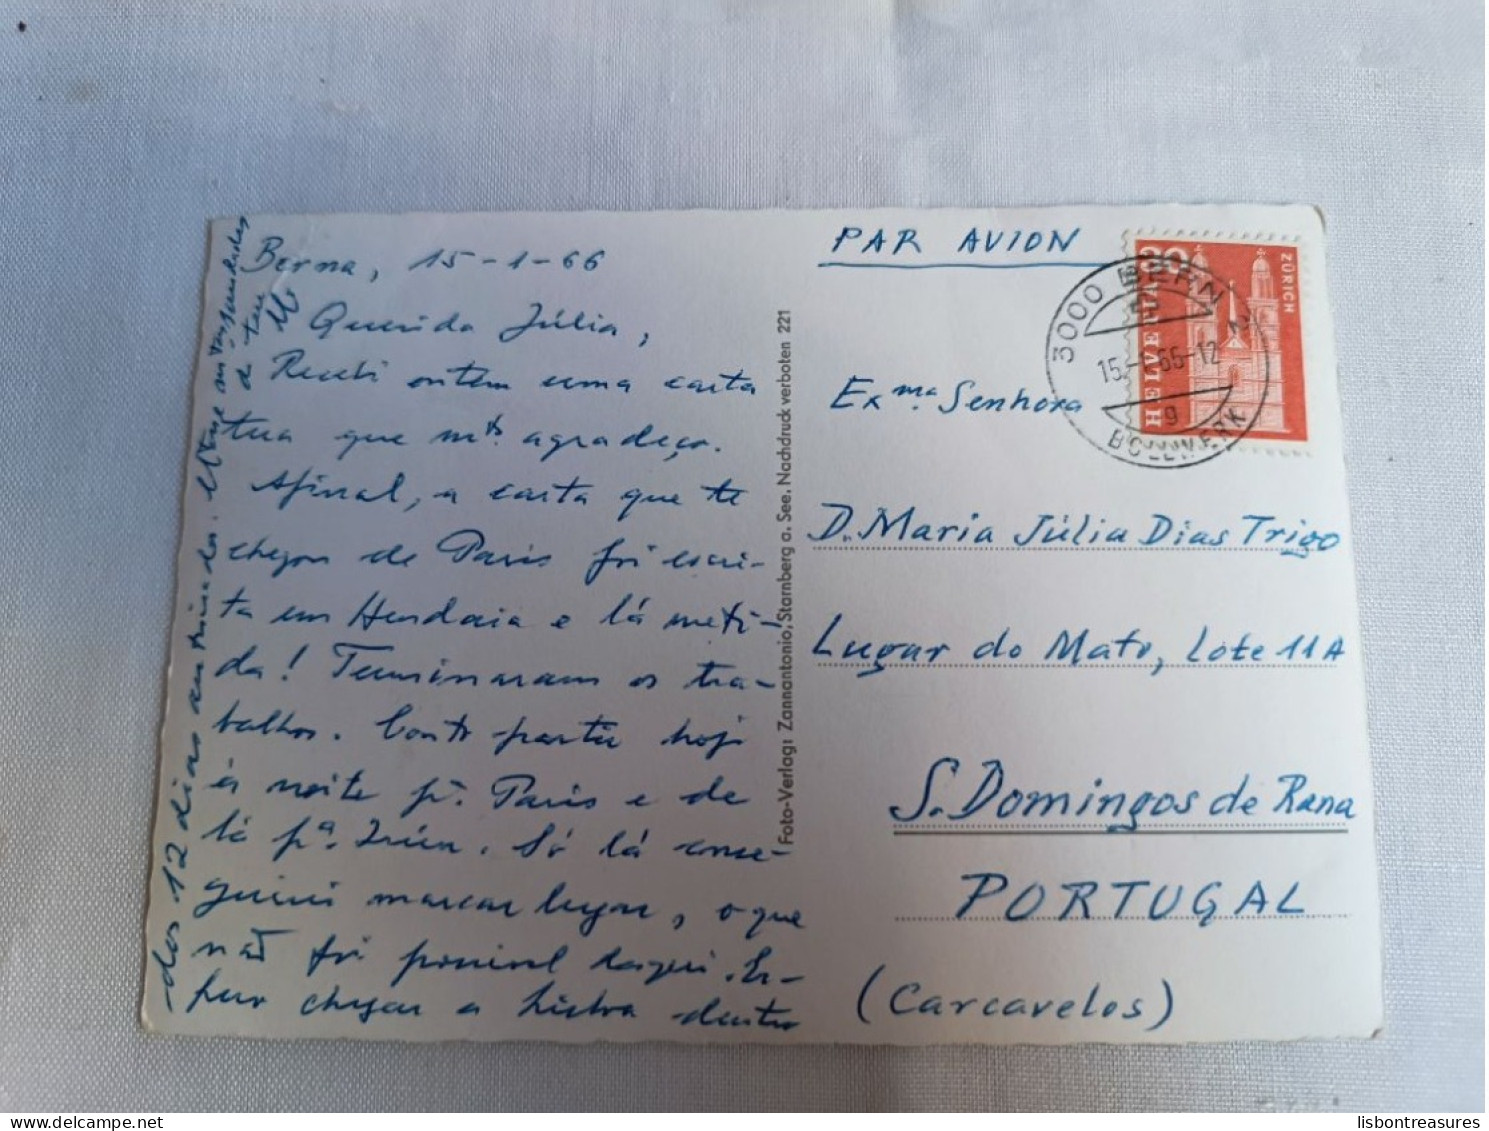 Berna, 15-1-66
Querida Júlia,
Recebi ontem uma carta
tua que mto. agradeço.
Afinal, a carta que te
chegou de Paris foi escri-
ta em Hendaia e lá meti-
da! Terminaram os tra-
balhos. Conto partir hoje
à noite pa. Paris e de
lá pa. Irún. Só lá conse-
guirei marcar lugar, o que
não foi possível daqui. Es-
pero chegar a Lisboa dentro
dos 12 dias
saudades
do teu
Foto-Verlag: Zannantonio, Starnberg a. See. Nachdruck verboten 221
PAR AVION
HELVETIA
30
ZÜRICH
3000 BERN 2
15.-1.66-12
g
BOLLWERK
Exma. Senhora
D. Maria Júlia Dias Trigo
Lugar do Mato, Lote 11A
S. Domingos de Rana
PORTUGAL
(Carcavelos)
lisbontreasures